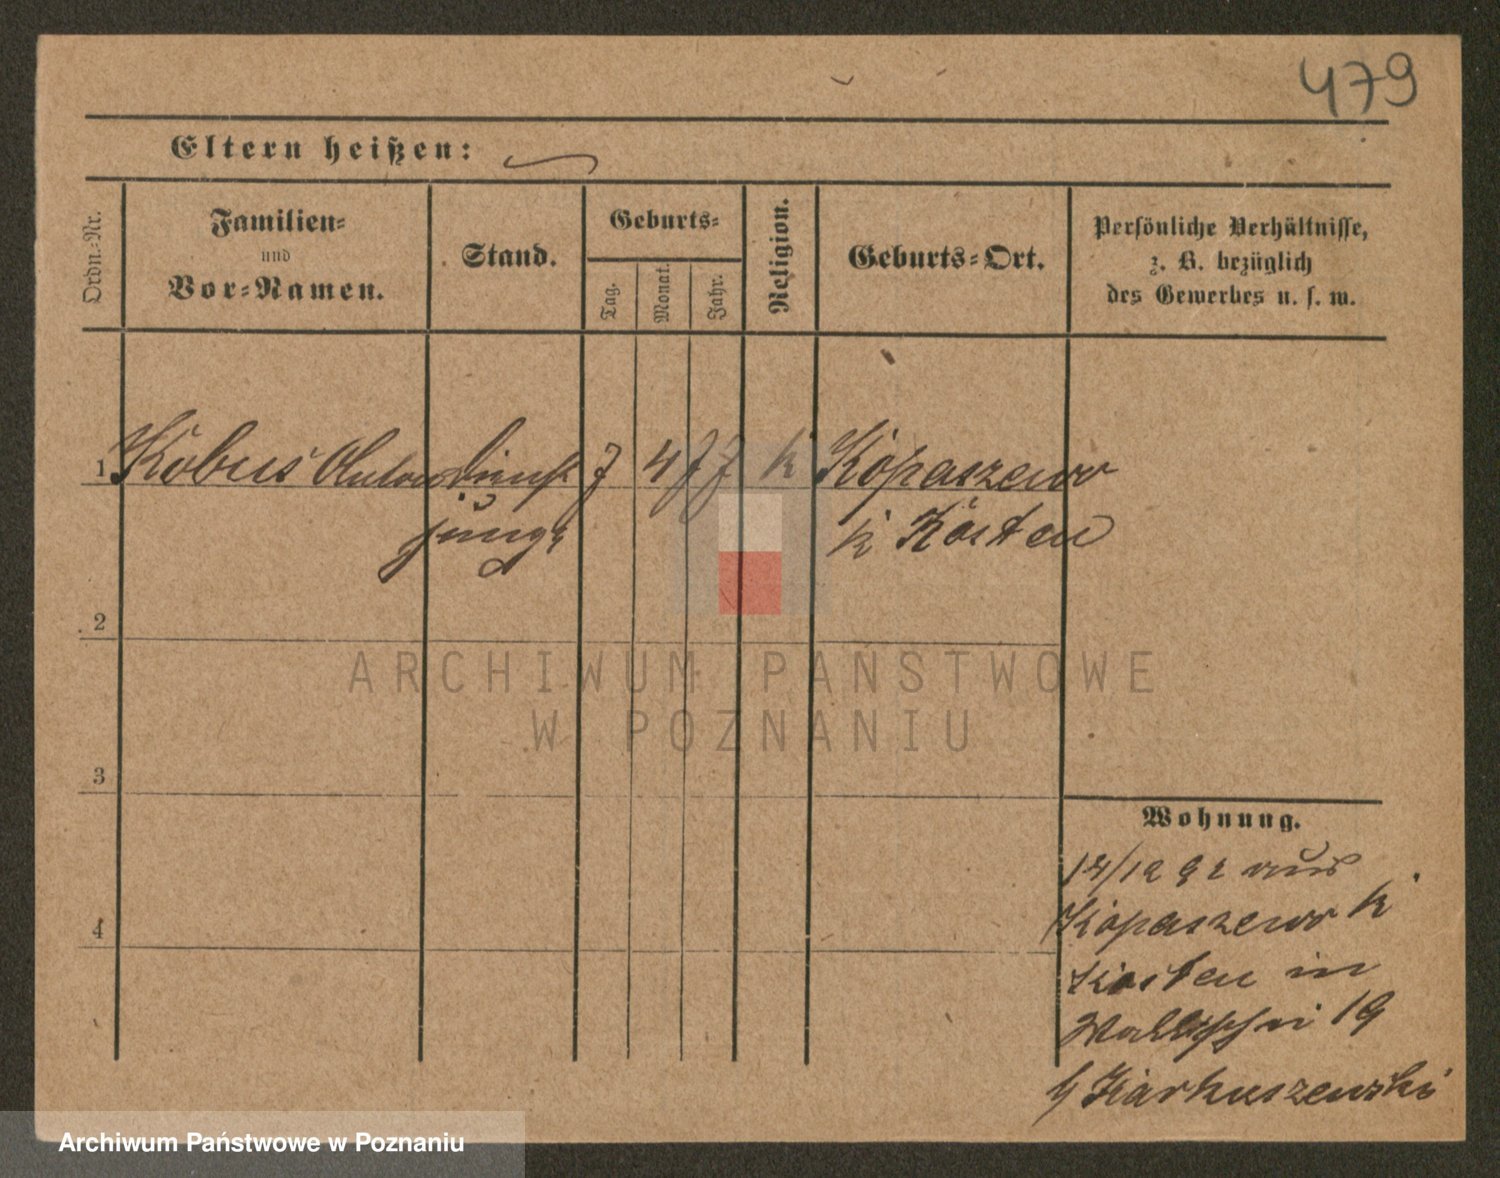 479
Eltern heißen:
Ordn.-Nr.
Familien-
und
Vor-Namen.
Stand.
Geburts-
Tag.
Monat.
Jahr.
Religion.
Geburts-Ort.
Persönliche Verhältnisse,
z. B. bezüglich
des Gewerbes u. s. w.
1 Kobus Anton Dienst 7 4 77 k Kopaszewo
junge k Kosten
2
3
4
Wohnung.
14/12 92 aus
Kopaszewo k
Kosten in
Wallischei 19
ARCHIWUM PAŃSTWOWE
W POZNANIU
Archiwum Państwowe w Poznaniu